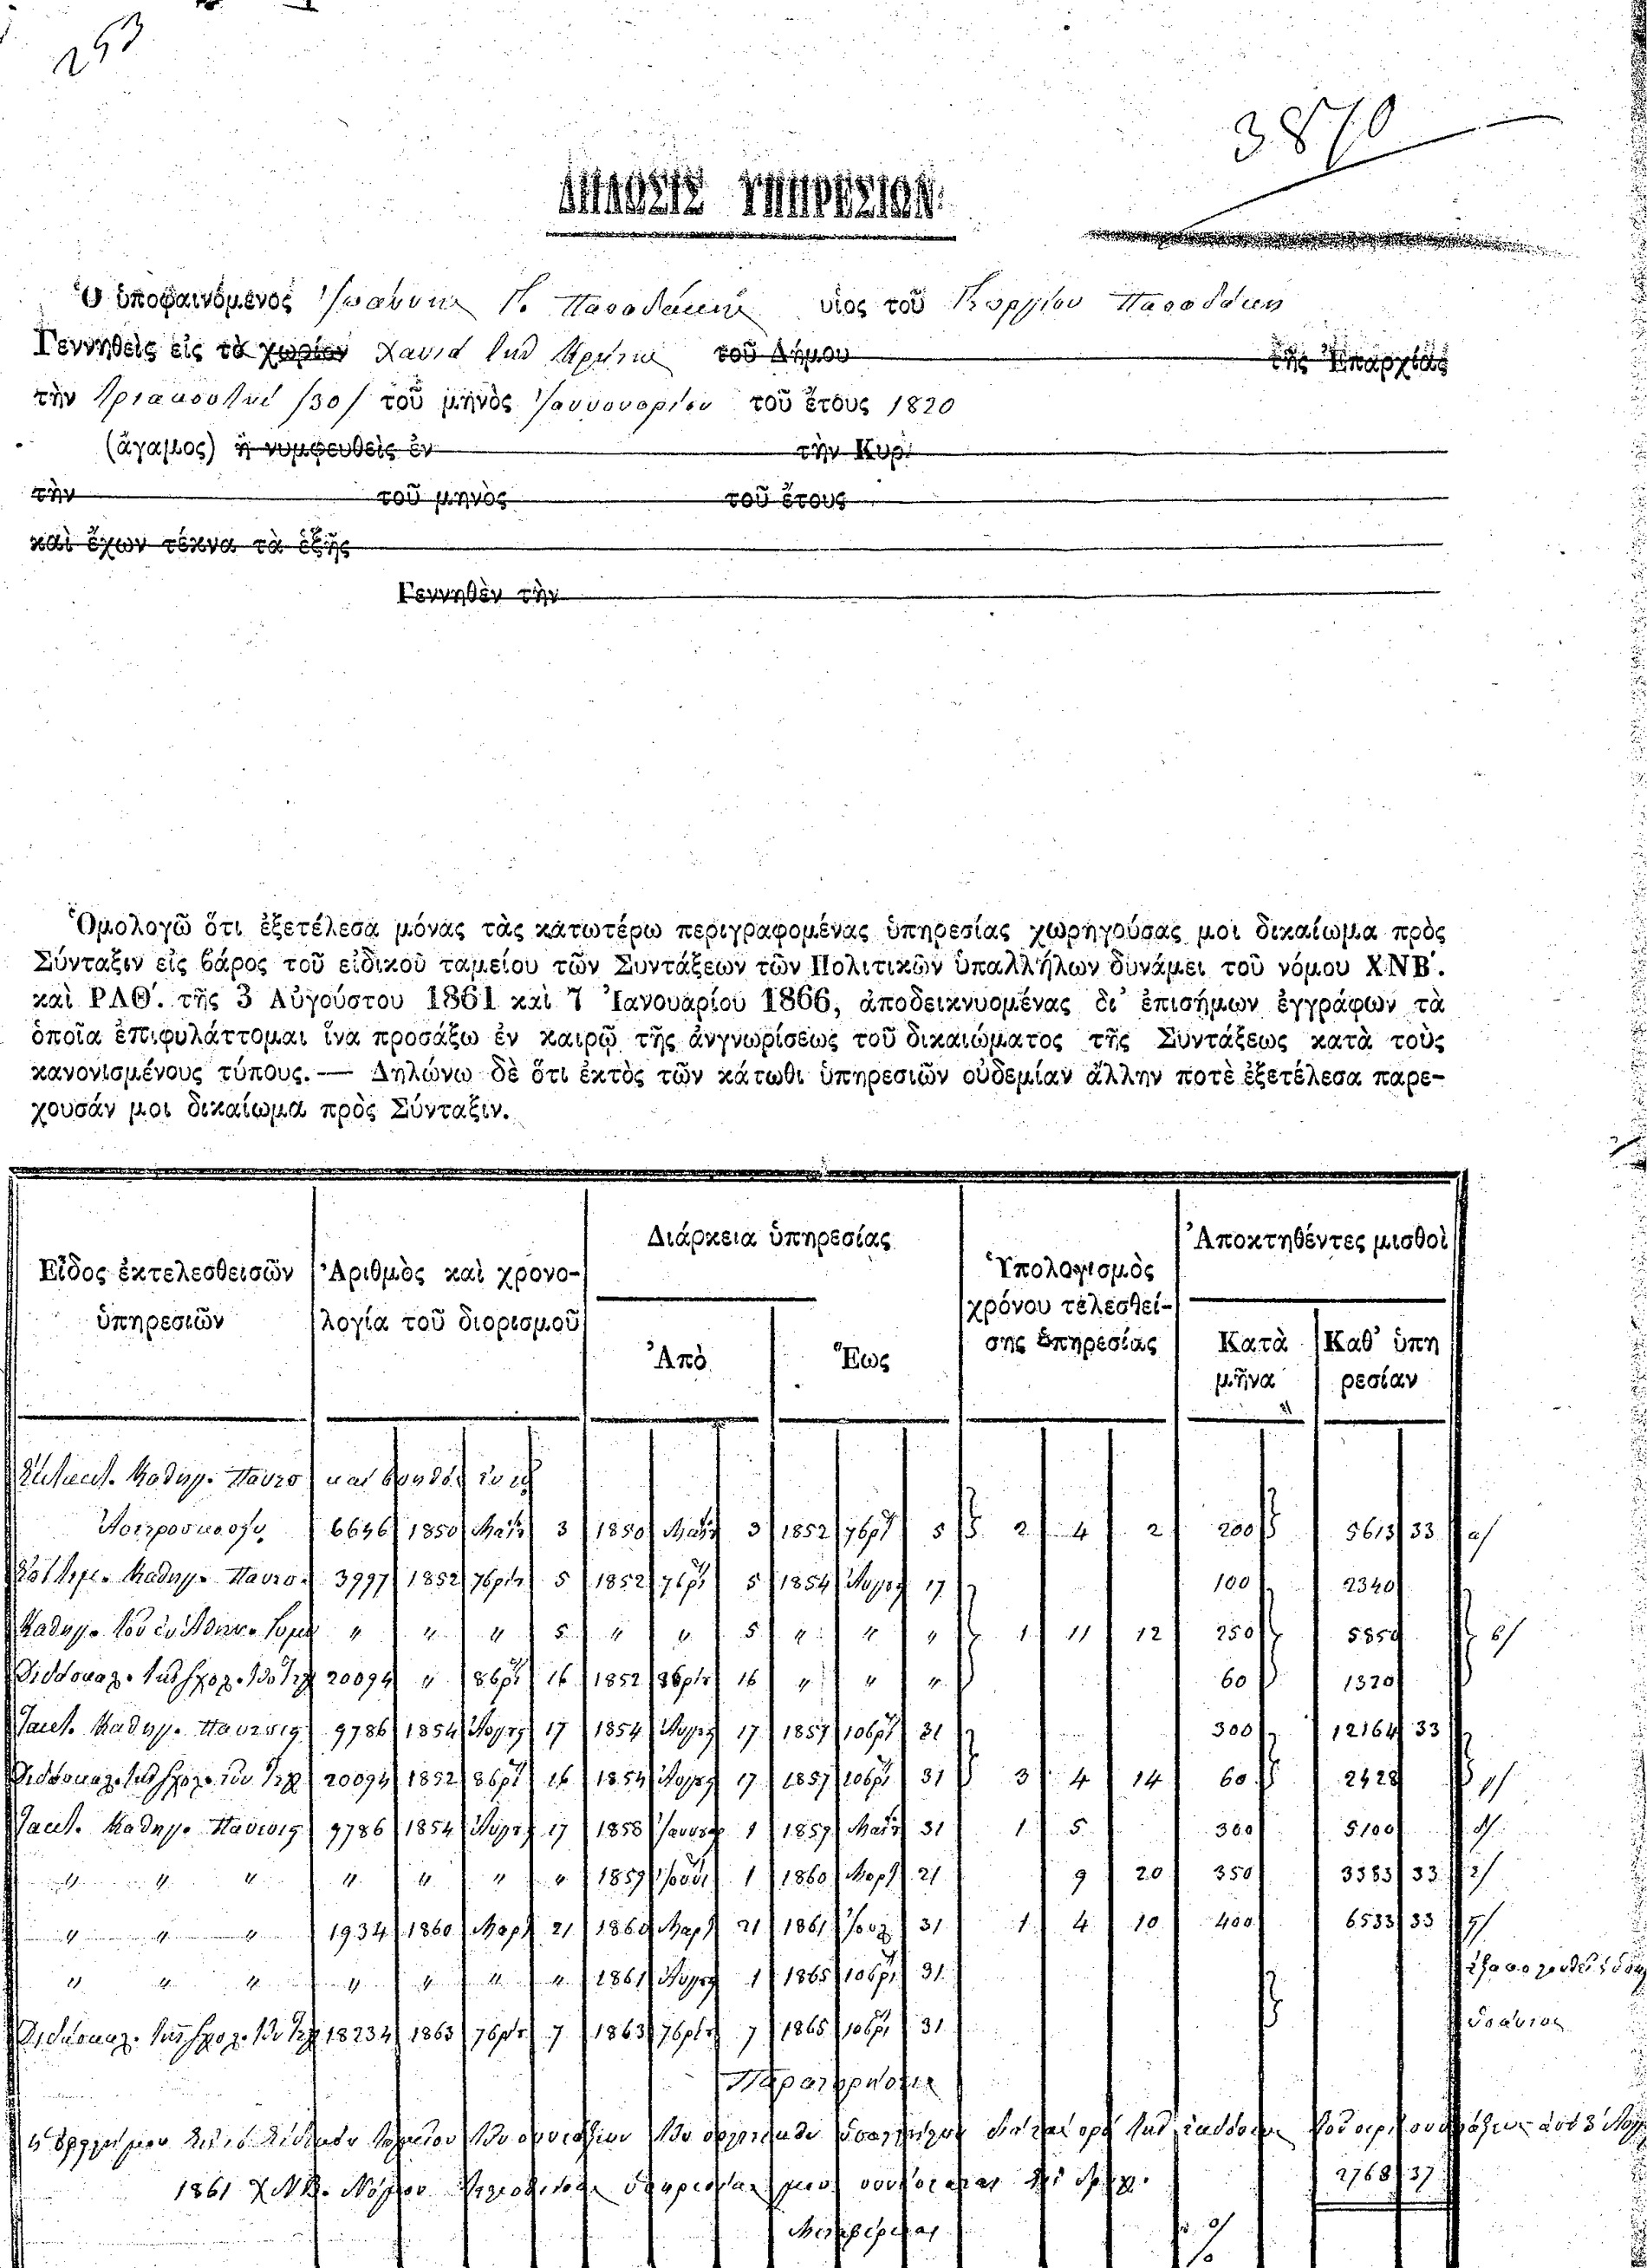 253
3870
ΔΗΛΩΣΙΣ ΥΠΗΡΕΣΙΩΝ.
Ὁ ὑποφαινόμενος Ἰωάννης Γ. Παπαδάκης υἱος τοῦ Γεωργίου Παπαδάκη
Γεννηθεὶς εἰς τὸ χωρίον Χανιά τῆς Κρήτης τοῦ Δήμου τῆς Ἐπαρχίας
τὴν τριακοστήν /30/ τοῦ μηνὸς Ἰαννουαρίου τοῦ ἔτους 1820
(ἄγαμος) ἢ νυμφευθεὶς ἐν τὴν Κυρ.
τὴν τοῦ μηνὸς τοῦ ἔτους
καὶ ἔχων τέκνα τὰ ἑξῆς
Γεννηθὲν τὴν
Ὁμολογῶ ὅτι ἐξετέλεσα μόνας τὰς κατωτέρω περιγραφομένας ὑπηρεσίας χωρηγούσας μοι δικαίωμα πρὸς
Σύνταξιν εἰς βάρος τοῦ εἰδικοῦ ταμείου τῶν Συντάξεων τῶν Πολιτικῶν ὑπαλλήλων δυνάμει τοῦ νόμου ΧΝΒ΄.
καὶ ΡΛΘ΄. τῆς 3 Αὐγούστου 1861 καὶ 7 Ἰανουαρίου 1866, ἀποδεικνυομένας δι' ἐπισήμων ἐγγράφων τὰ
ὁποῖα ἐπιφυλάττομαι ἵνα προσάξω ἐν καιρῷ τῆς ἀνγνωρίσεως τοῦ δικαιώματος τῆς Συντάξεως κατὰ τοὺς
κανονισμένους τύπους.— Δηλώνω δὲ ὅτι ἐκτὸς τῶν κάτωθι ὑπηρεσιῶν οὐδεμίαν ἄλλην ποτὲ ἐξετέλεσα παρε-
χουσάν μοι δικαίωμα πρὸς Σύνταξιν.
Εἶδος ἐκτελεσθεισῶν ὑπηρεσιῶν
Ἀριθμὸς καὶ χρονο-
λογία τοῦ διορισμοῦ
Διάρκεια ὑπηρεσίας
Ἀπὸ
Ἕως
Ὑπολογισμὸς
χρόνου τελεσθεί-
σης ὑπηρεσίας
Ἀποκτηθέντες μισθοὶ
Κατὰ
μῆνα
Καθ' ὑπη
ρεσίαν
Καθηγ. Πανεπ καὶ βοηθός ἐν τῷ
Ἀστεροσκοπ. 6646 1850 Μαΐου 3 1850 Μαΐου 3 1852 7βρίου 5 2 4 2 200 5613 33 α/
Καθηγ. Πανεπ. 3997 1852 7βρίου 5 1852 7βρίου 5 1854 Αὐγούσ 17 100 2340
Καθηγ. τοῦ ἐν Ἀθήν. Γυμ " " " 5 " " 5 " " " 1 11 12 250 5850 β/
Διδάσκαλ. τῆς Σχολ. τῶν Τεχ 20094 " 8βρίου 16 1852 8βρίου 16 " " " 60 1320
Τακτ. Καθηγ. Πανεπισ 9786 1854 Αὐγούσ 17 1854 Αὐγούσ 17 1857 10βρίου 31 300 12164 33
Διδάσκαλ. τῆς Σχολ. τῶν Τεχ 20094 1852 8βρίου 16 1854 Αὐγούσ 17 1857 10βρίου 31 3 4 14 60 2428 γ/
Τακτ. Καθηγ. Πανεπισ 9786 1854 Αὐγούσ 17 1858 Ἰαννουαρ 1 1859 Μαΐου 31 1 5 300 5100 δ/
" " " " " " " 1859 Ἰουνί 1 1860 Μαρτ 21 9 20 350 3383 33 ε/
" " " 1934 1860 Μαρτ 21 1860 Μαρτ 21 1861 Ἰουλ 31 1 4 10 400 6533 33 ς/
" " " " " " " 1861 Αὐγούσ 1 1865 10βρίου 31
Διδάσκαλ. τῆς Σχολ. τῶν Τεχ 18234 1863 7βρίου 7 1863 7βρίου 7 1865 10βρίου 31
Παρατήρησις
1861 ΧΝΒ. Νόμου ὑπηρεσίας μου 2768 37
Μεταφέρεται